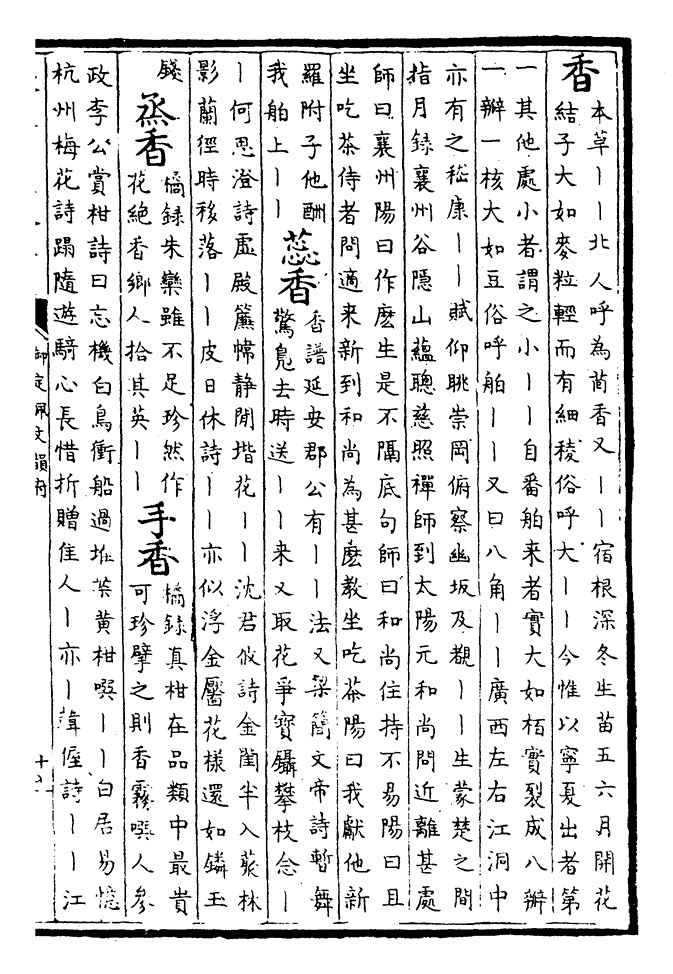 香
本草丨丨北人呼為茴香又丨丨宿根深冬生苗五六月開花
結子大如麥粒輕而有細稜俗呼大丨丨今惟以寧夏出者第
一其他處小者謂之小丨丨自番舶来者實大如栢實裂成八瓣
一瓣一核大如豆俗呼舶丨丨又曰八角丨丨廣西左右江洞中
亦有之嵇康丨丨賦仰眺崇岡俯察幽坂及覩丨丨生蒙楚之間
指月録襄州谷隱山蘊聰慈照禪師到太陽元和尚問近離甚處
師曰襄州陽曰作麽生是不隔底句師曰和尚住持不易陽曰且
坐吃茶侍者問適来新到和尚為甚麽教坐吃茶陽曰我獻他新
羅附子他酬
我舶上丨丨
蕊香
香譜延安郡公有丨丨法又梁簡文帝詩暫舞
驚鳬去時送丨丨来又取花爭寳鑷攀枝念丨
丨何思澄詩虛殿簾帷静閒堦花丨丨沈君攸詩金閨半入藂林
影蘭徑時移落丨丨皮日休詩丨丨亦似浮金靨花樣還如鏻玉
錢
烝香
橘録朱欒雖不足珍然作
花絶香鄉人拾其英丨丨
手香
橘録真柑在品類中最貴
可珍擘之則香霧噀人參
政李公賞柑詩曰忘機白鳥衝船過堆菜黄柑噀丨丨白居易憶
杭州梅花詩蹋隨遊騎心長惜折贈佳人丨亦丨韓偓詩丨丨江
御定佩文韻府